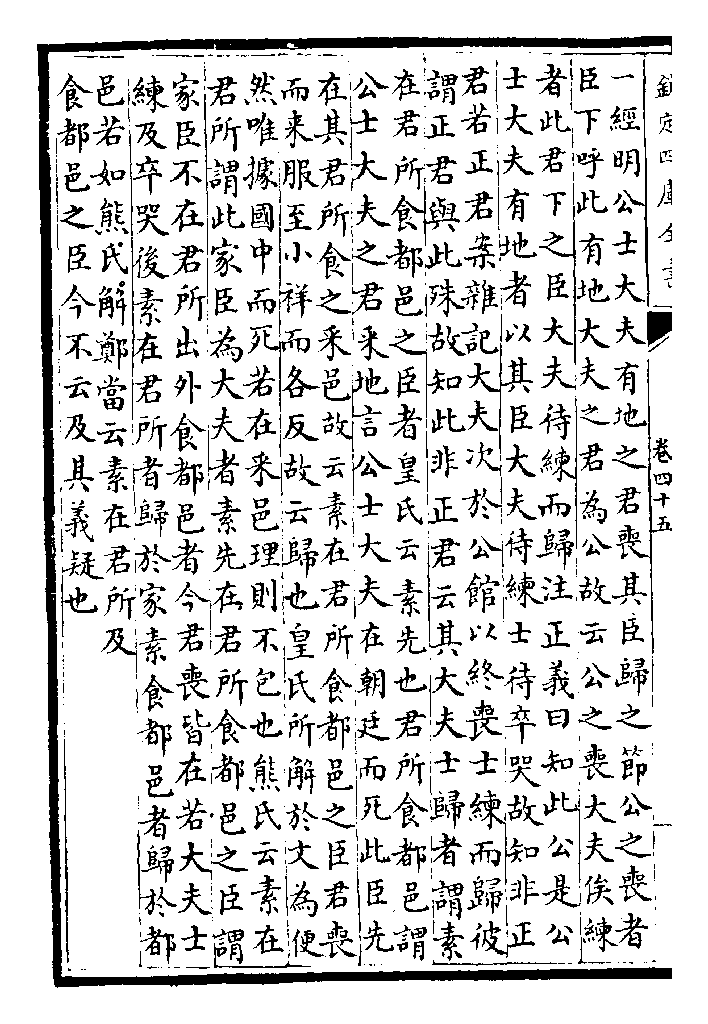 欽定四庫全書
卷四十五
一經明公士大夫有地之君喪其臣歸之節公之喪者
臣下呼此有地大夫之君為公故云公之喪大夫俟練
者此君下之臣大夫待練而歸注正義曰知此公是公
士大夫有地者以其臣大夫待練士待卒哭故知非正
君若正君案雜記大夫次於公館以終喪士練而歸彼
謂正君與此殊故知此非正君云其大夫士歸者謂素
在君所食都邑之臣者皇氏云素先也君所食都邑謂
公士大夫之君采地言公士大夫在朝廷而死此臣先
在其君所食之采邑故云素在君所食都邑之臣君喪
而来服至小祥而各反故云歸也皇氏所解於文為便
然唯據國中而死若在采邑理則不包也熊氏云素在
君所謂此家臣為大夫者素先在君所食都邑之臣謂
家臣不在君所出外食都邑者今君喪皆在若大夫士
練及卒哭後素在君所者歸於家素食都邑者歸於都
邑若如熊氏解鄭當云素在君所及
食都邑之臣今不云及其義疑也